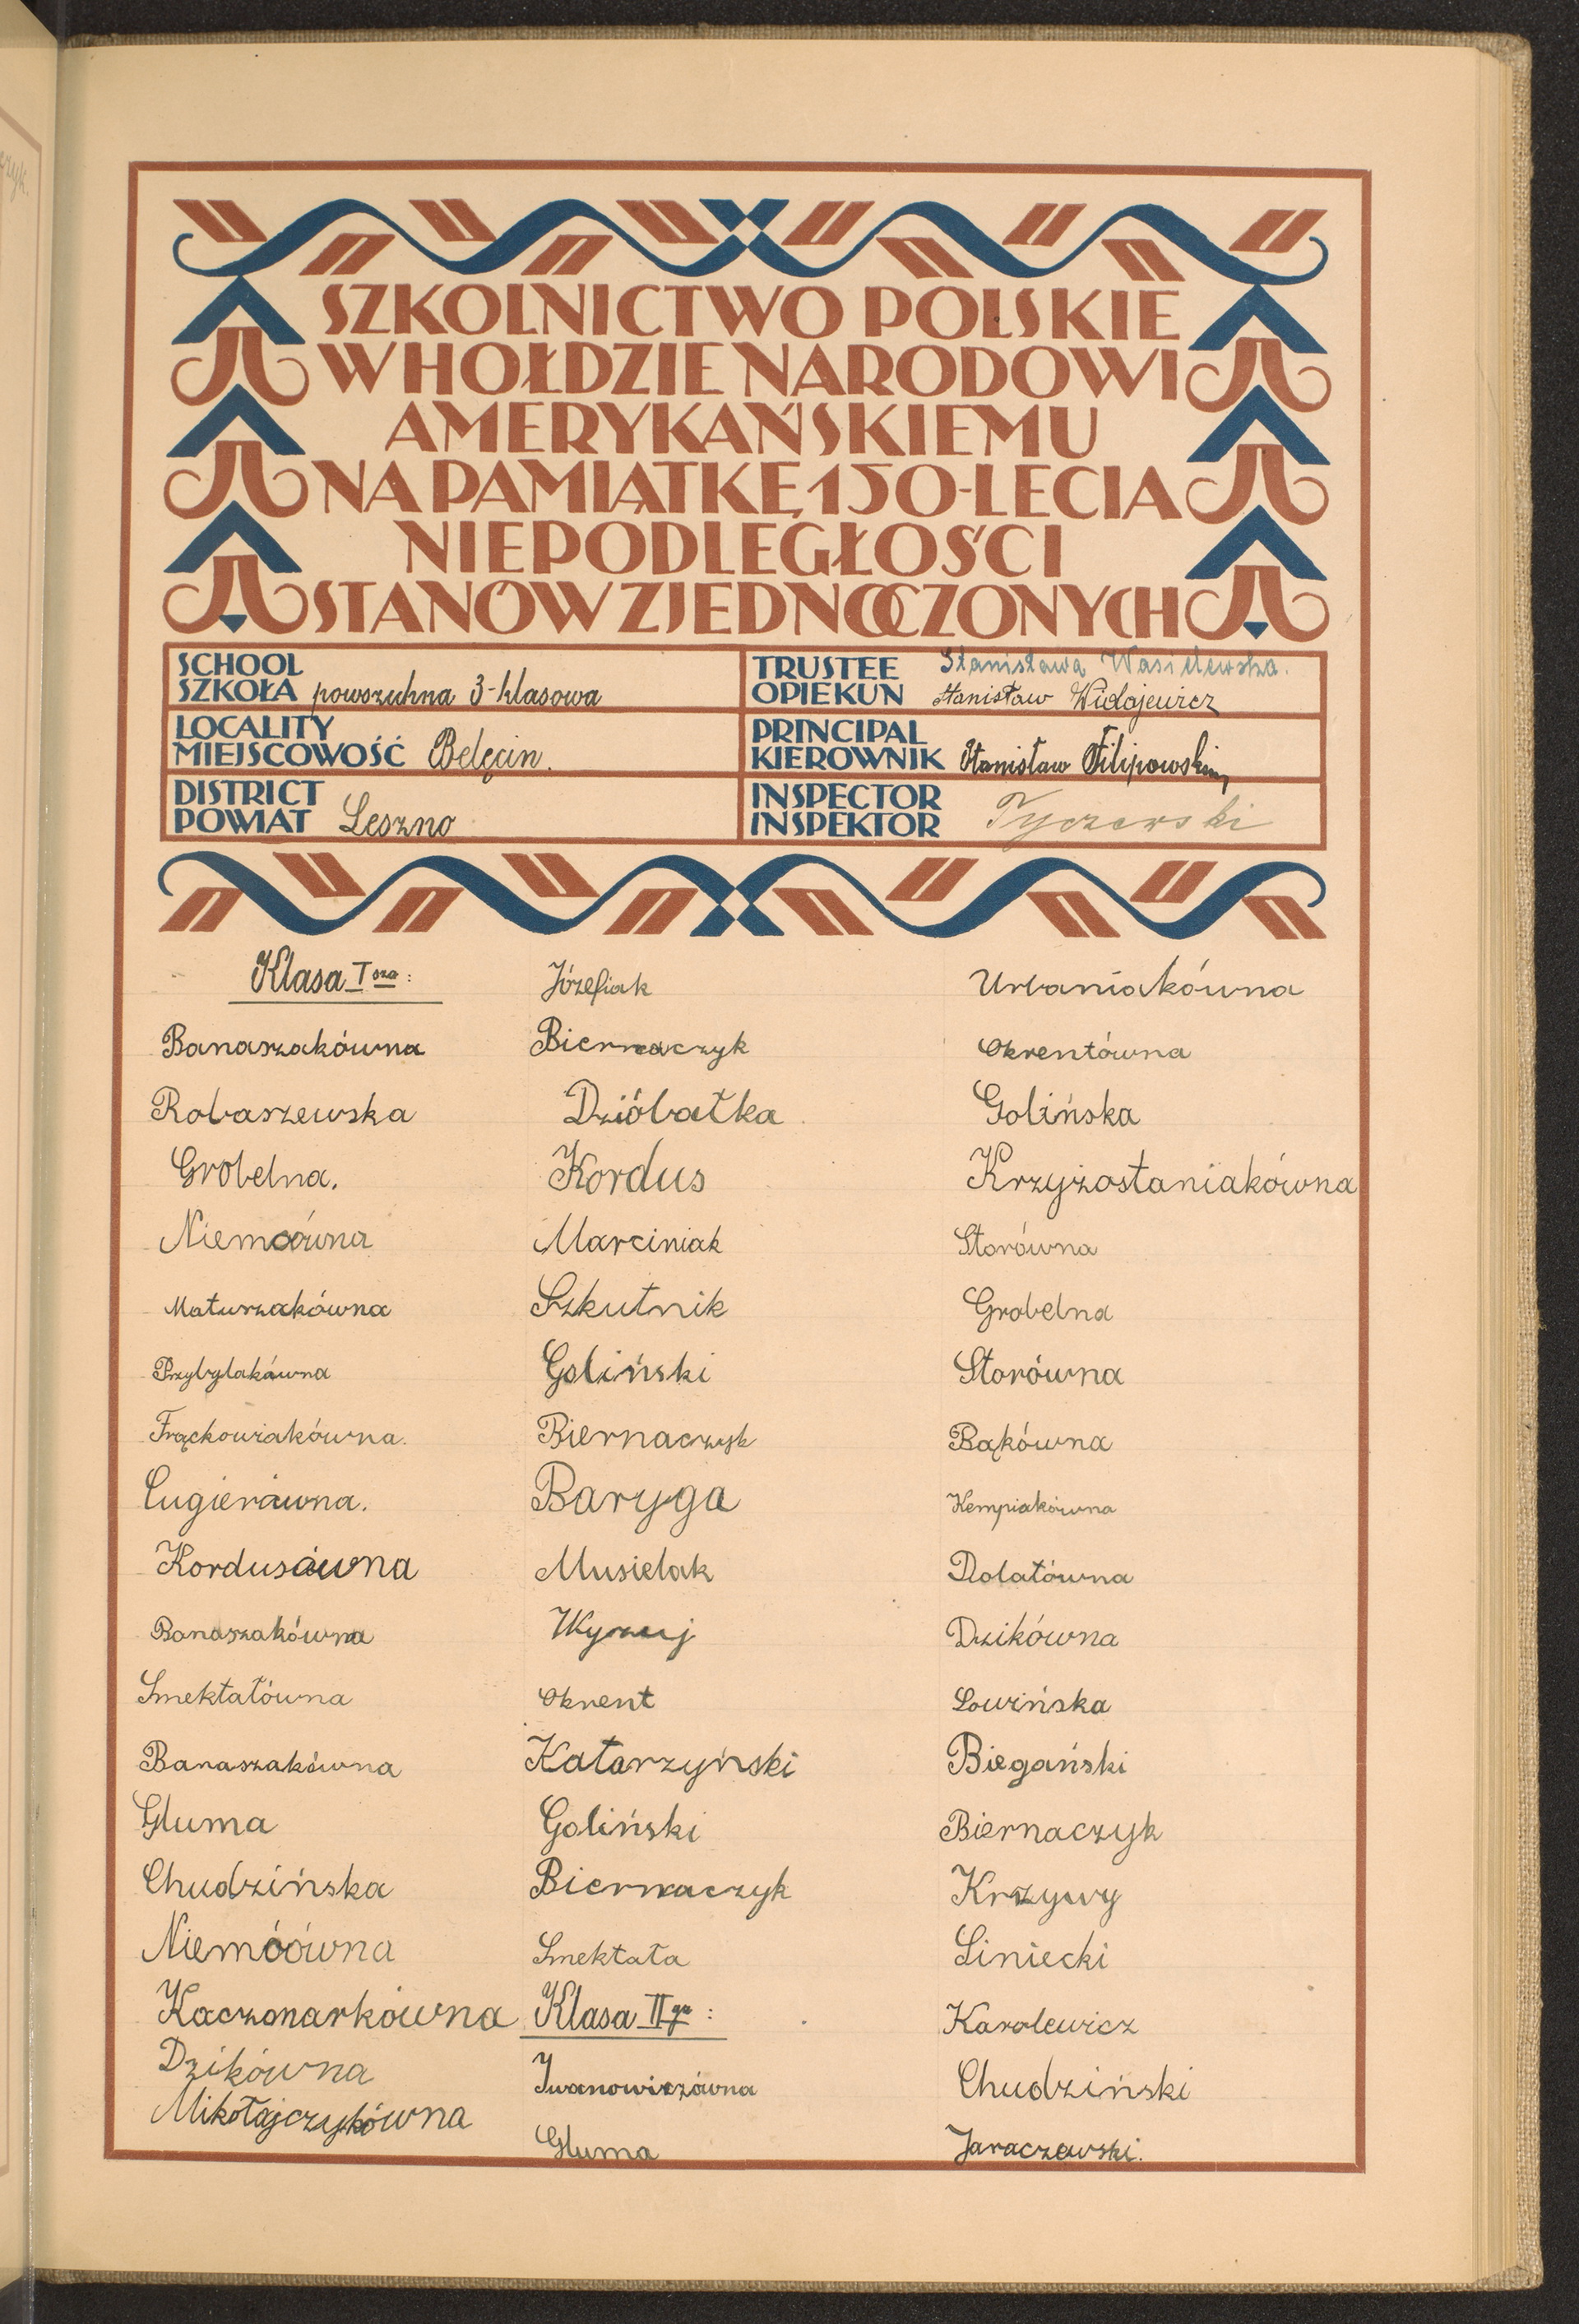 SZKOLNICTWO POLSKIE
W HOŁDZIE NARODOWI
AMERYKAŃSKIEMU
NA PAMIĄTKĘ 150-LECIA
NIEPODLEGŁOŚCI
STANÓW ZJEDNOCZONYCH
SCHOOL
SZKOŁA powszechna 3-klasowa
LOCALITY
MIEJSCOWOŚĆ Belęcin.
DISTRICT
POWIAT Leszno
TRUSTEE Stanisława Wasielewska.
OPIEKUN Stanisław Widajewicz
PRINCIPAL
KIEROWNIK Stanisław Filipowski
INSPECTOR
INSPEKTOR Tyczewski
Klasa I sza:
Banaszakówna
Robaszewska
Grobelna.
Niemoówna
Maturzakówna
Przybylakówna
Frąckowiakówna.
Cugierówna.
Kordusówna
Banaszakówna
Smektałówna
Banaszakówna
Gluma
Chudzińska
Niemóówna
Kaczmarkówna
Dzikówna
Mikołajczykówna
Józefiak
Biernaczyk
Dzióbatka
Kordus
Marciniak
Szkutnik
Goliński
Biernaczyk
Baryga
Musielak
Okrent
Katarzyński
Goliński
Biernaczyk
Smektała
Klasa II ga:
Iwanowiczówna
Gluma
Urbaniakówna
Okrentówna
Golińska
Krzyżostaniakówna
Storówna
Grobelna
Storówna
Bąkówna
Kempiakówna
Dolatówna
Dzikówna
Łowińska
Biegański
Biernaczyk
Krzywy
Liniecki
Karolewicz
Chudziński
Jaraczewski.